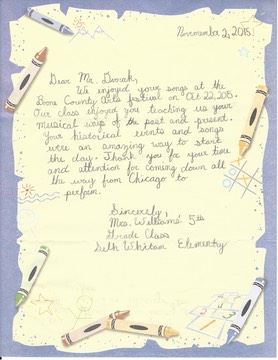 November 2, 2015
Dear Mr. Dvorak,
We enjoyed your songs at the
Boone County Arts festival on Oct 22, 2015.
Our class enjoyed you teaching us your
musical ways of the past and present.
Your historical events and songs
were an amazing way to start
the day. Thank you for your time
and attention for coming down all
the way from Chicago to
perform.
Sincerely,
Mrs. Williams' 5th
Grade Class
Seth Whitman Elementry